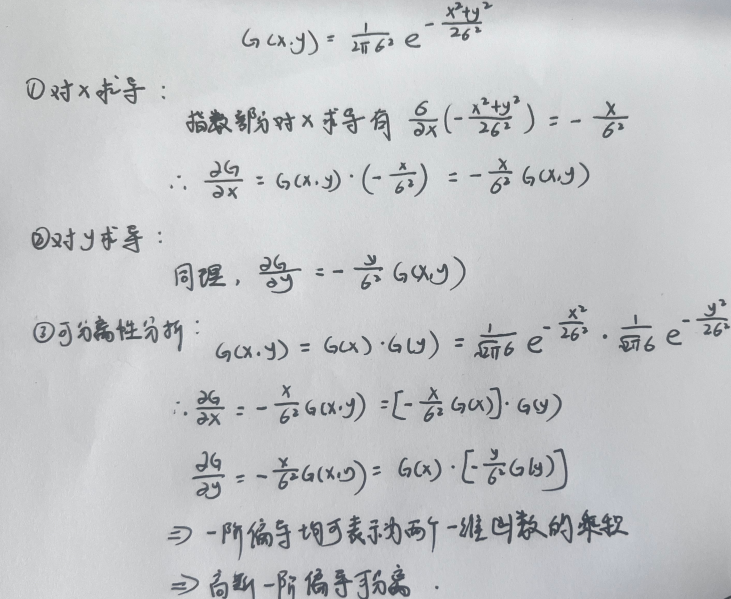 G(x,y) = \frac{1}{2π6²} e^{-\frac{x²+y²}{26²}}
①对x求导:
指数部分对x求导有 \frac{6}{∂x}(-\frac{x²+y²}{26²}) = -\frac{x}{6²}
∴ \frac{∂G}{∂x} = G(x,y)·(-\frac{x}{6²}) = -\frac{x}{6²}G(x,y)
②对y求导:
同理, \frac{∂G}{∂y} = -\frac{y}{6²}G(x,y)
③可分离性分析:
G(x,y) = G(x)·G(y) = \frac{1}{\sqrt{2π}6} e^{-\frac{x²}{26²}} · \frac{1}{\sqrt{2π}6} e^{-\frac{y²}{26²}}
∴ \frac{∂G}{∂x} = -\frac{x}{6²}G(x,y) = [-\frac{x}{6²}G(x)]·G(y)
\frac{∂G}{∂y} = -\frac{x}{6²}G(x,y) = G(x)·[-\frac{y}{6²}G(y)]
⇒ 一阶偏导均可表示为两个一维函数的乘积
⇒ 高斯一阶偏导可分离.